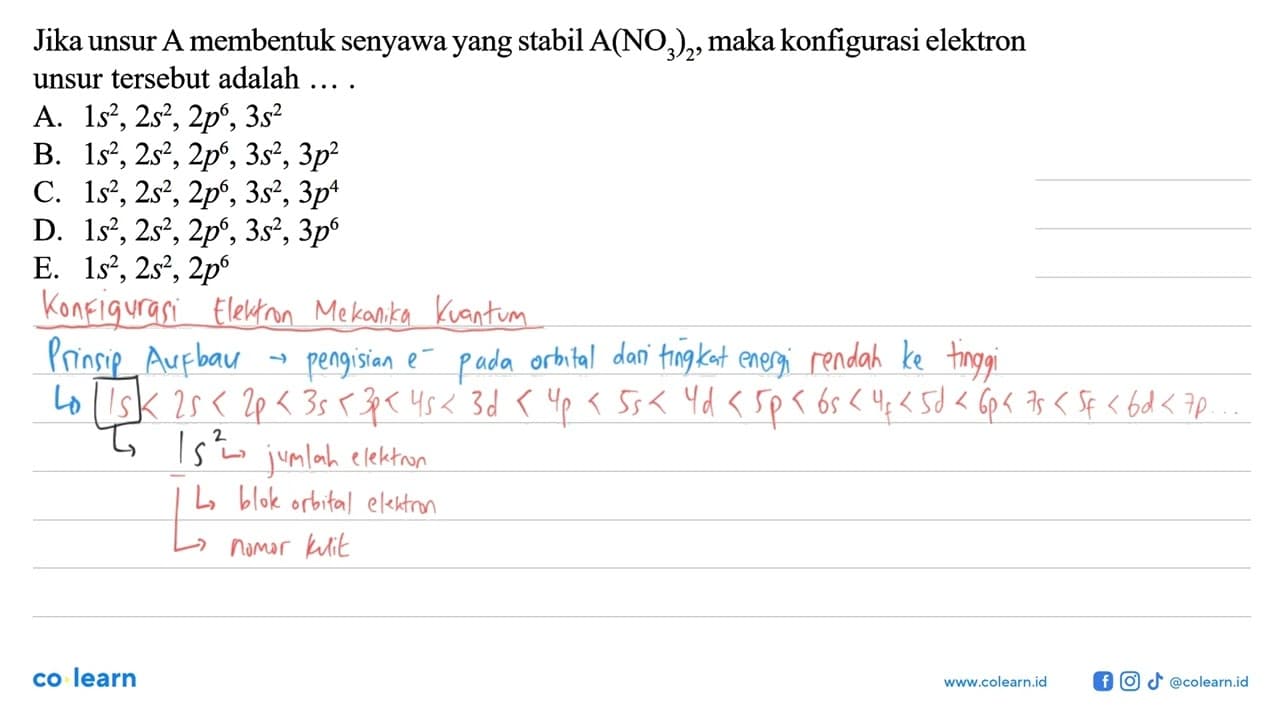 Jika unsur A membentuk senyawa yang stabil A(NO₃)₂, maka konfigurasi elektron
unsur tersebut adalah ... .
A. 1s², 2s², 2p⁶, 3s²
B. 1s², 2s², 2p⁶, 3s², 3p²
C. 1s², 2s², 2p⁶, 3s², 3p⁴
D. 1s², 2s², 2p⁶, 3s², 3p⁶
E. 1s², 2s², 2p⁶
Konfigurasi Elektron Mekanika Kuantum
Prinsip Aufbau → pengisian e⁻ pada orbital dari tingkat energi rendah ke tinggi
↳ 1s < 2s < 2p < 3s < 3p < 4s < 3d < 4p < 5s < 4d < 5p < 6s < 4f < 5d < 6p < 7s < 5f < 6d < 7p...
↳ 1s² ↳ jumlah elektron
↳ blok orbital elektron
↳ nomor kulit
co learn
www.colearn.id
@colearn.id